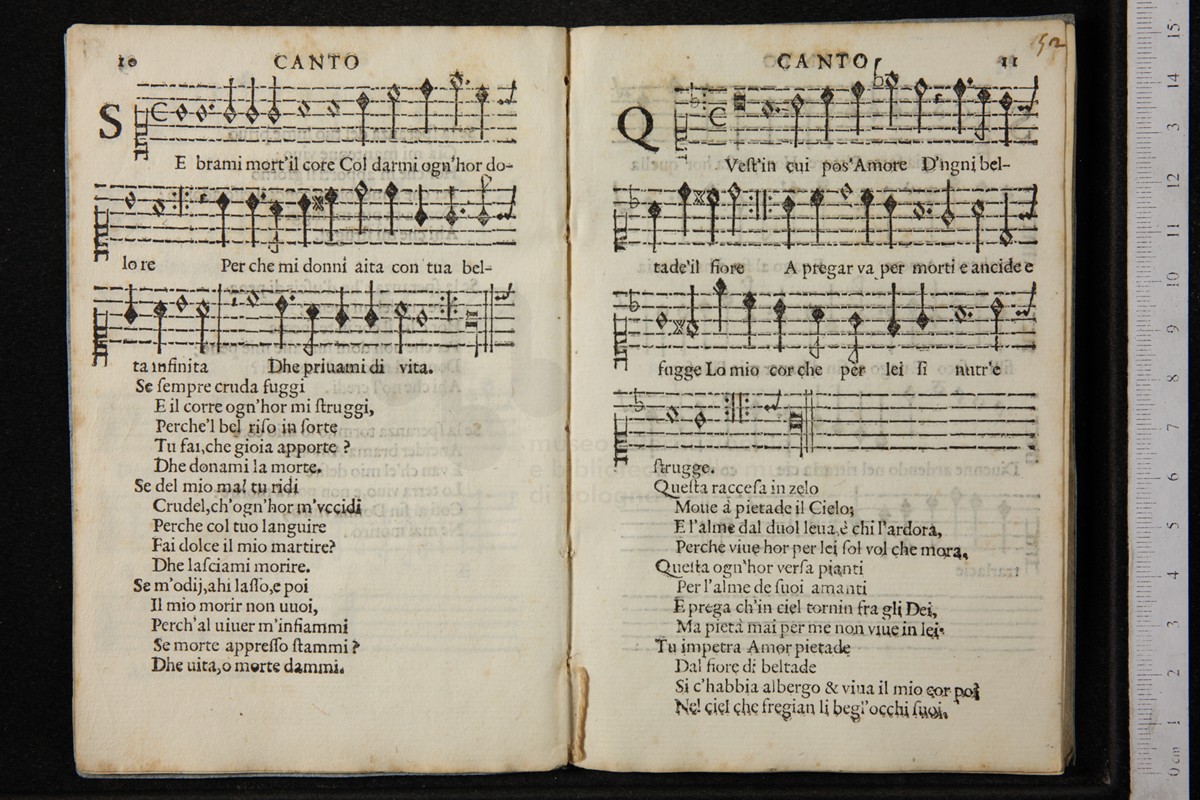 10 CANTO
S
E brami mort'il core Col darmi ogn'hor do-
lore Per che mi donni aita con tua bel-
ta infinita Dhe priuami di vita.
Se ſempre cruda fuggi
E il corre ogn'hor mi ſtruggi,
Perche'l bel riſo in ſorte
Tu fai,che gioia apporte ?
Dhe donami la morte.
Se del mio mal tu ridi
Crudel,ch'ogn'hor m'vccidi
Perche col tuo languire
Fai dolce il mio martire?
Dhe laſciami morire.
Se m'odij,ahi laſſo,e poi
Il mio morir non uuoi,
Perch'al uiuer m'infiammi
Se morte appreſſo ſtammi ?
Dhe uita,o morte dammi.
CANTO 11
52
Q
Veſt'in cui pos'Amore D'ngni bel-
tade'il fiore A pregar va per morti e ancide e
fugge Lo mio cor che per lei ſi nutr'e
ſtrugge.
Queſta racceſa in zelo
Moue á pietade il Cielo;
E l'alme dal duol leua,e chi l'ardora,
Perche viue hor per lei ſol vol che mora.
Queſta ogn'hor verſa pianti
Per l'alme de ſuoi amanti
E prega ch'in ciel tornin fra gli Dei,
Ma pietà mai per me non viue in lei.
Tu impetra Amor pietade
Dal fiore di beltade
Si c'habbia albergo & viua il mio cor poi
Nel ciel che fregian li begl'occhi ſuoi.
museo
e biblioteca
di bologna
0 cm 1 2 3 4 5 6 7 8 9 10 11 12 13 14 15